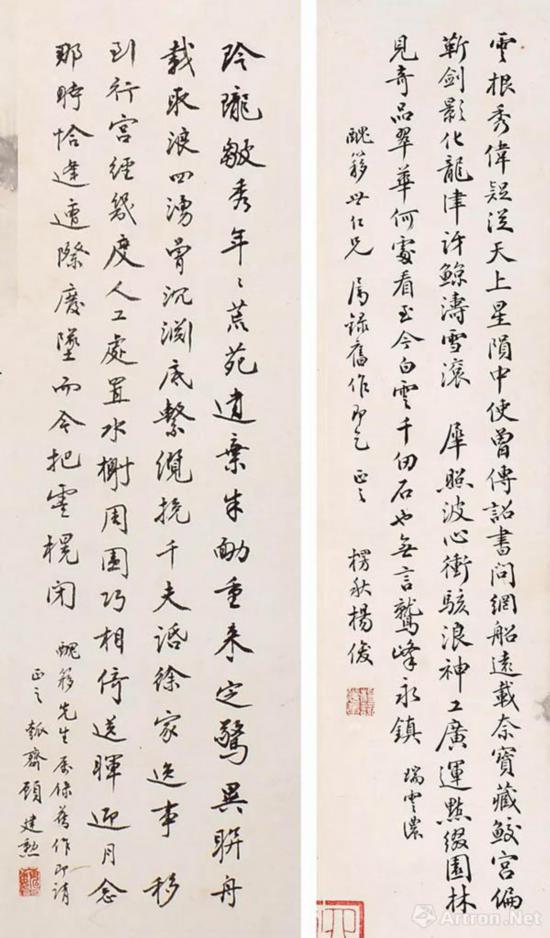 雲根秀偉疑從天上星隕中使曾傳詔書問網船遠載奈寶藏鮫宮偏
靳劍影化龍津許鯨濤雪滾 犀照波心衝駭浪神工廣運點綴園林
見奇品翠華何處看至今白雲千仞石也無言鷲峰永鎮 瑞雲濃
醜簃世仁兄屬錄舊作即乞正之 楞秋楊俊
玲瓏皺秀年〻荒苑遺棄朱勔重來定驚異聯舟
載取浪四湧骨沉淵底繫纜挽千夫話徐家逸事 移
到行宮經幾度人工處置水榭周圍巧相倚送暉迎月念
那時恰逢遭際慶墜而今把雲幌閉
醜簃先生屬錄舊作即請
正之 瓠齋顧建勳
Artron.Net